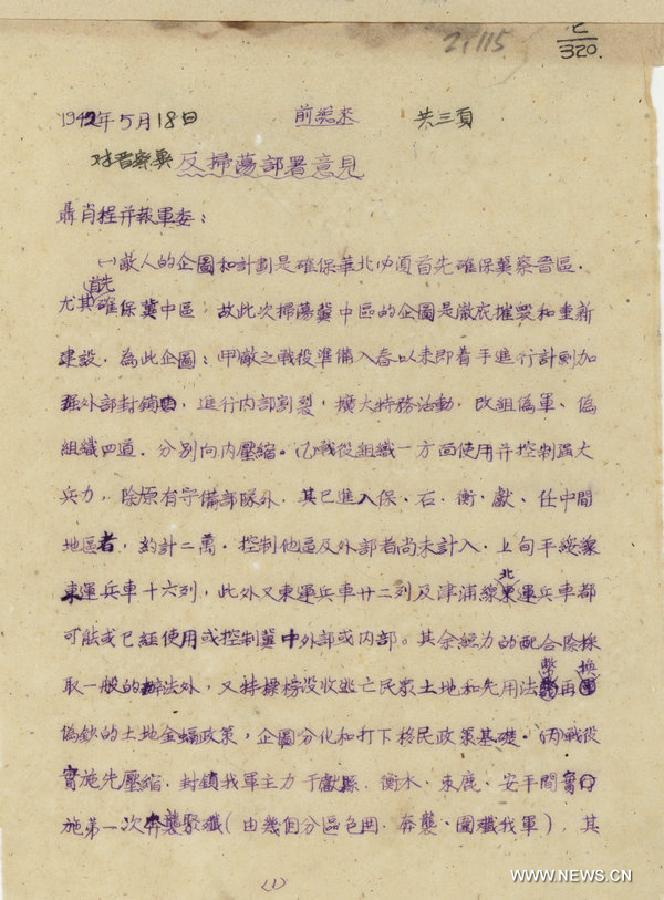 2,115
320.
1942年5月18日 前總來 共三頁
对晋察冀反掃蕩部署意見
聶肖程并報軍委：
(一)敵人的企圖和計劃是確保華北必須首先確保冀察晋區．
首先
尤其確保冀中區，故此次掃蕩冀中區的企圖是澈底摧毁和重新
建設．為此企圖：甲敵之戰役準備入春以来即着手進行計劃加
强外部封鎖，進行内部割裂，擴大特務活動．改組偽軍、偽
組織四道．分别向内壓縮。(乙)戰役組織一方面使用并控制强大
兵力，除原有守備部隊外，其已進入保、石、衡、獻、任中間
地區者，約計二萬．控制他區及外部者尚未計入．上旬平綏線
北
東運兵車十六列，此外又東運兵車廿二列及津浦線運兵車都
可能或已經使用或控制冀中外部或内部。其余經力的配合除採
幣 換
取一般的辦法外，又特標榜没收逃亡民眾土地和先用法再
偽鈔的土地金融政策，企圖分化和打下移民政策基礎。(丙)戰役
實施先壓縮．封鎖我軍主力于獻縣．衡水、束鹿、安平間實
施第一次奔襲聚殲（由幾個分區包囲．奔襲、圍殲我軍），其
(1)
WWW.NEWS.CN